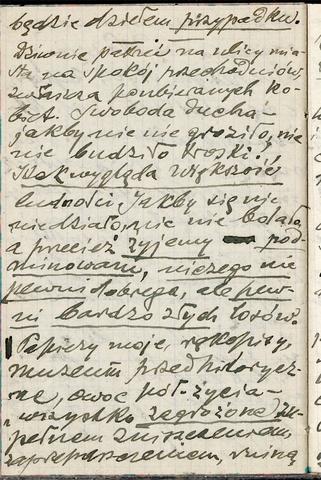 będzie dziełem przypadku.
Dziwnie patrzeć na ulicy mia-
sta na spokój przechodniów,
zwłaszcza poubieranych ko-
biet. Swoboda ducha –
jakby nic nie groziło, nic
nie budziło troski!
Tak wygląda większość
ludności. Jakby się nic
nie działo, nic nie bolało,
a przecież żyjemy pod-
minowani, niczego nie
pewni dobrego, ale pew-
ni bardzo złych losów.
Papiery moje, rękopisy,
muzeum przedhistorycz-
ne, owoc pół-życia –
wszystko zagrożone zu-
pełnem zniszczeniem,
zaprzepaszczeniem, ruiną